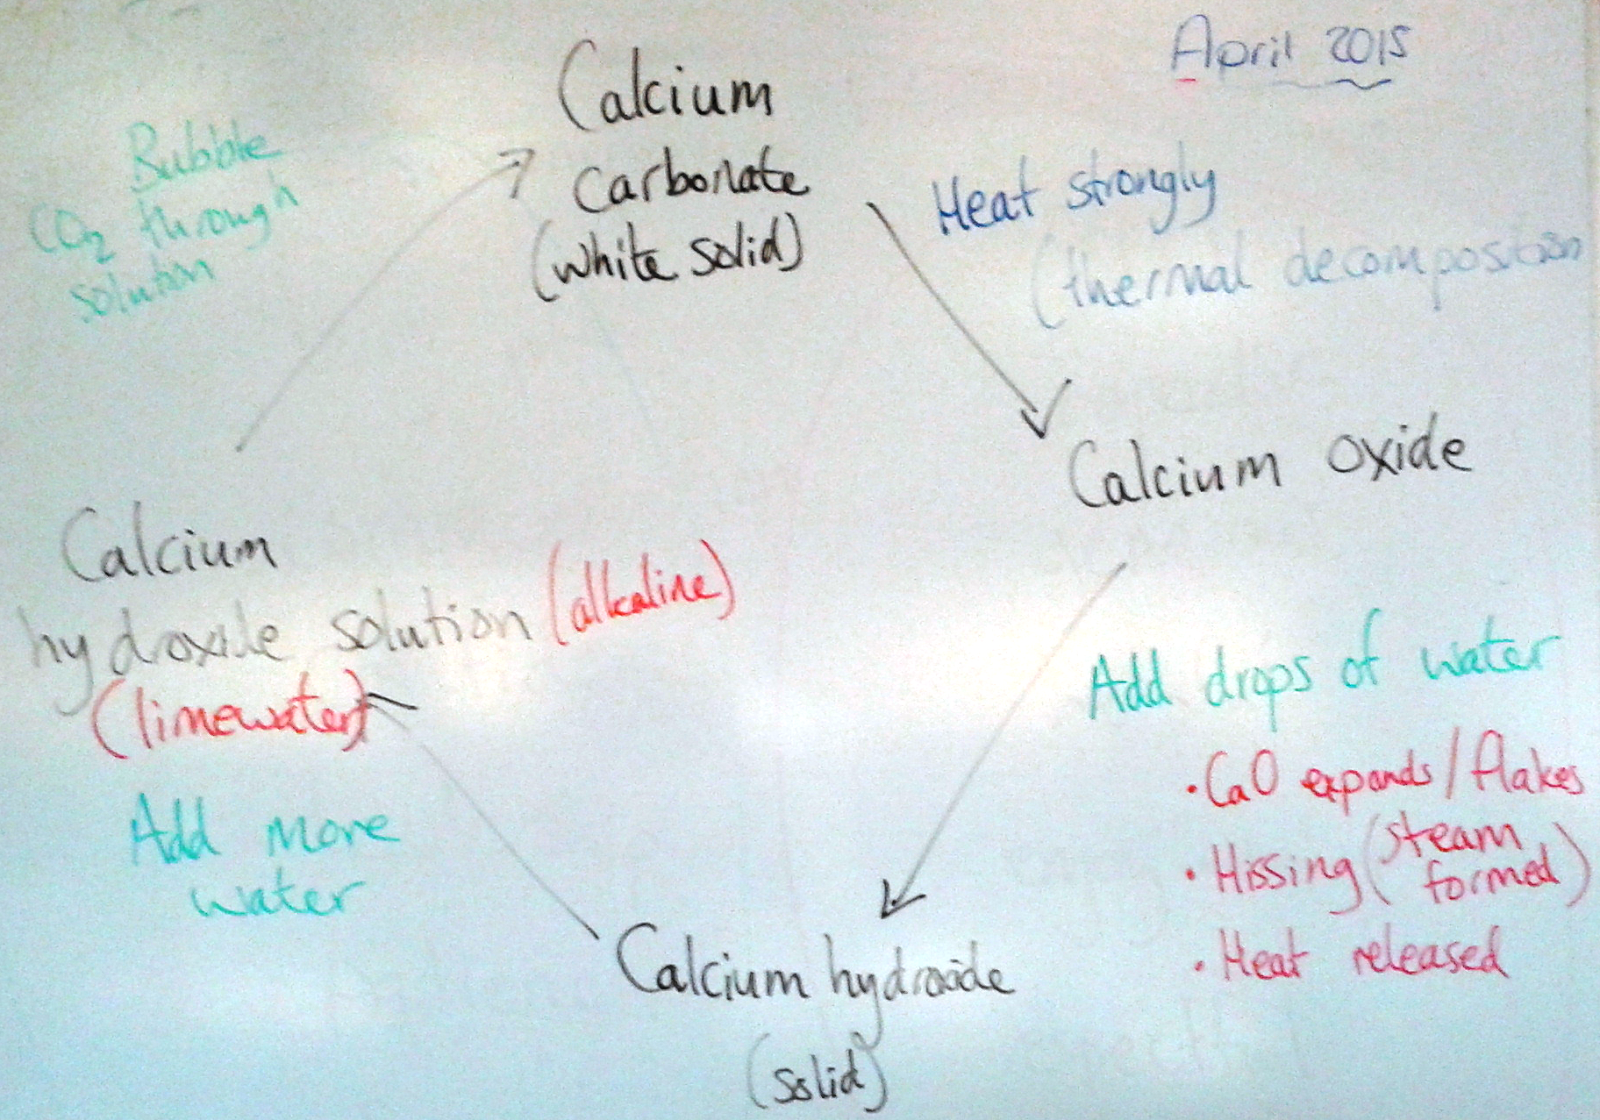 April 2015
Calcium
carbonate
(white solid)
Heat strongly
(thermal decomposition
Calcium oxide
Add drops of water
• CaO expands/flakes
• Hissing (steam
formed)
• Heat released
Calcium hydroxide
(solid)
Add more
water
Calcium
hydroxide solution (alkaline)
(limewater)
Bubble
CO2 through
solution